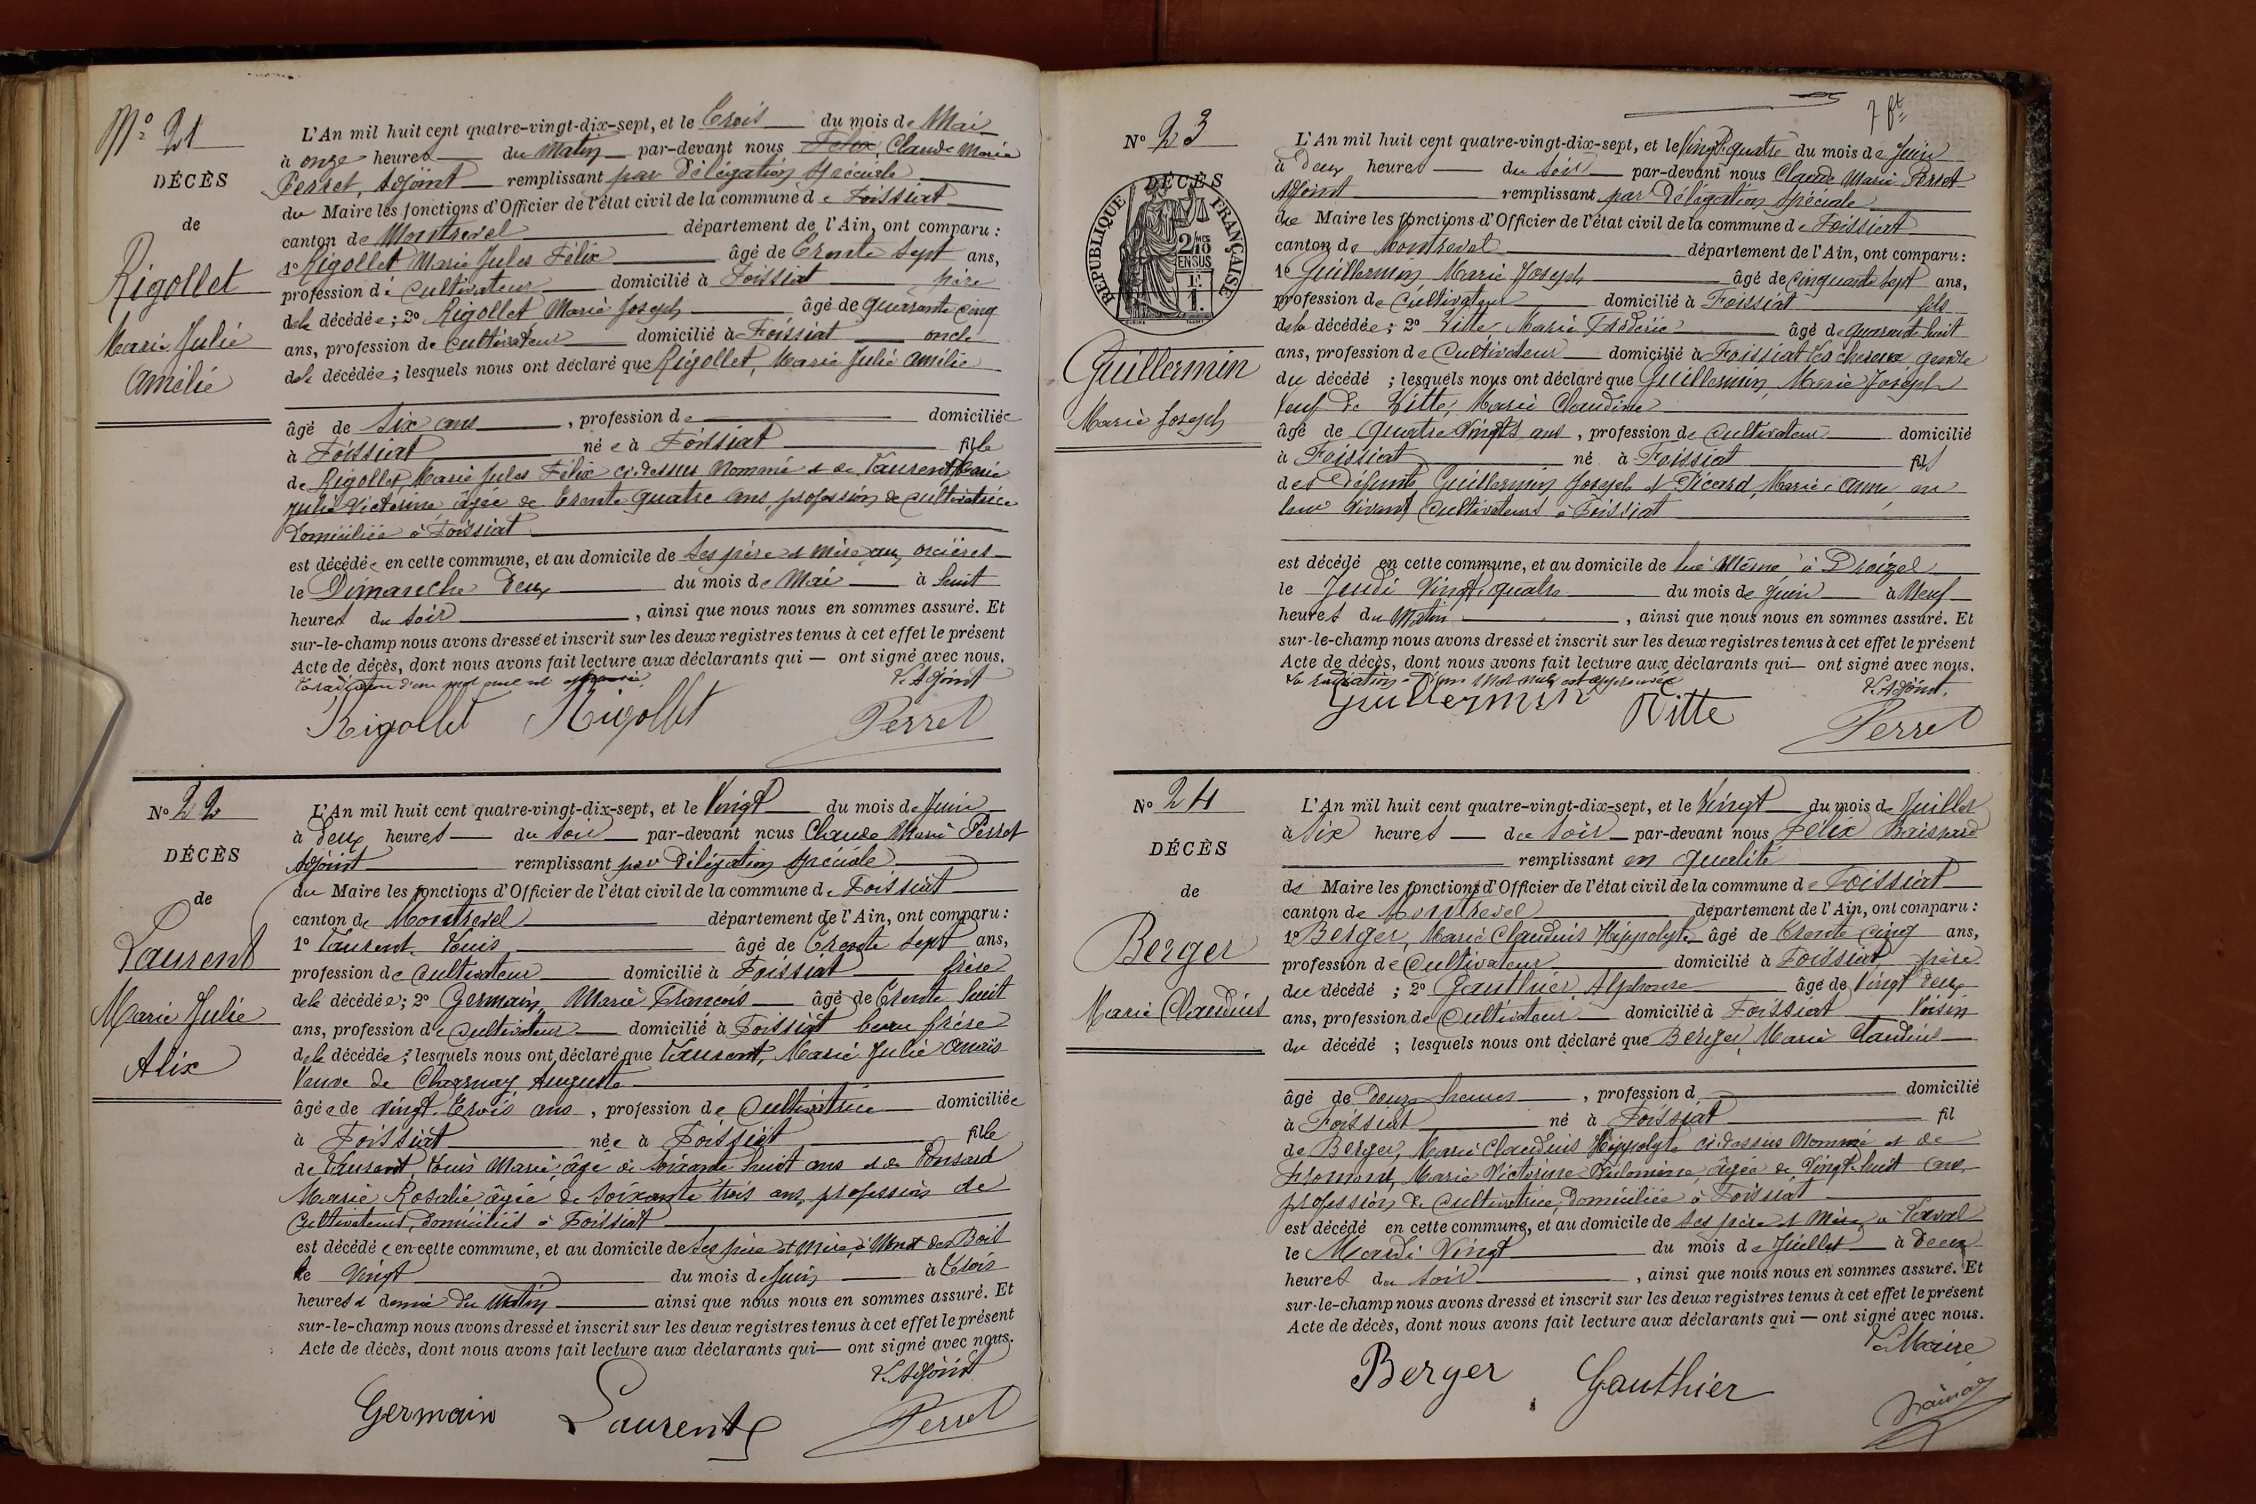 No 21
DÉCÈS
de
Rigollet
Marie Julie
Amélie
L'An mil huit cent quatre-vingt-dix-sept, et le Trois du mois de Mai
à onze heures du Matin par-devant nous Félix, Claude Marie
Perret, Adjoint remplissant par Délégation spéciale
du Maire les fonctions d'Officier de l'état civil de la commune de Foissiat
canton de Montrevel département de l'Ain, ont comparu :
1º Rigollet Marie Jules Félix âgé de Trente sept ans,
profession de Cultivateur domicilié à Foissiat père
de la décédée ; 2º Rigollet Marie Joseph âgé de quarante cinq
ans, profession de Cultivateur domicilié à Foissiat oncle
de la décédée ; lesquels nous ont déclaré que Rigollet, Marie Julie Amélie
âgé de Six ans , profession de domiciliée
à Foissiat née à Foissiat fille
de Rigollet, Marie Jules Félix ci-dessus nommé et de Laurent, Marie
Julie Victorine âgée de Trente quatre ans, profession de cultivatrice
Domiciliée à Foissiat
est décédée en cette commune, et au domicile de ses père et mère aux
le Dimanche Deux du mois de Mai à huit
heures du soir , ainsi que nous nous en sommes assuré. Et
sur-le-champ nous avons dressé et inscrit sur les deux registres tenus à cet effet le présent
Acte de décès, dont nous avons fait lecture aux déclarants qui — ont signé avec nous.
La radiation d'un mot nul est approuvée L'Adjoint
Rigollet Rigollet Perret
No 22
DÉCÈS
de
Laurent
Marie Julie
Alix
L'An mil huit cent quatre-vingt-dix-sept, et le Vingt du mois de Juin
à Deux heures du soir par-devant nous Claude Marie Perret
Adjoint remplissant par Délégation spéciale
du Maire les fonctions d'Officier de l'état civil de la commune de Foissiat
canton de Montrevel département de l'Ain, ont comparu :
1º Laurent Louis âgé de Trente sept ans,
profession de cultivateur domicilié à Foissiat frère
de la décédée ; 2º Germain, Marie François âgé de Trente huit
ans, profession de Cultivateur domicilié à Foissiat beau frère
de la décédée ; lesquels nous ont déclaré que Laurent, Marie Julie
Veuve de Charnay Auguste
âgée de vingt-trois ans , profession de Cultivatrice domiciliée
à Foissiat née à Foissiat fille
de Laurent, Louis Marie, âgé de soixante huit ans et de Ponsard
Marie Rosalie âgée de soixante trois ans, profession de
Cultivateurs, domiciliés à Foissiat
est décédée en cette commune, et au domicile de ses père et mère, à Mont des Bois
le Vingt du mois de Juin à Trois
heures et demie du Matin ainsi que nous nous en sommes assuré. Et
sur-le-champ nous avons dressé et inscrit sur les deux registres tenus à cet effet le présent
Acte de décès, dont nous avons fait lecture aux déclarants qui — ont signé avec nous.
L'Adjoint
Germain Laurent Perret
7 ft
No 23
DÉCÈS
RÉPUBLIQUE FRANÇAISE
2/10 EN SUS
Guillermin
Marie Joseph
L'An mil huit cent quatre-vingt-dix-sept, et le Vingt-quatre du mois de Juin
à Deux heures du soir par-devant nous Claude Marie Perret
Adjoint remplissant par Délégation spéciale
du Maire les fonctions d'Officier de l'état civil de la commune de Foissiat
canton de Montrevel département de l'Ain, ont comparu :
1º Guillermin, Marie Joseph âgé de cinquante sept ans,
profession de Cultivateur domicilié à Foissiat fils
de la décédée ; 2º Vitte, Marie Frédéric âgé de quarante huit
ans, profession de Cultivateur domicilié à Foissiat gendre
du décédé ; lesquels nous ont déclaré que Guillermin, Marie Joseph
veuf de Vitte, Marie Claudine
âgé de Quatre Vingts ans , profession de Cultivateur domicilié
à Foissiat né à Foissiat fils
des Défunts Guillermin Joseph et Picard, Marie-Anne, en
leur vivant Cultivateurs à Foissiat
est décédé en cette commune, et au domicile de lui-même à Proizel
le Jeudi Vingt-quatre du mois de Juin à Neuf
heures du Matin , ainsi que nous nous en sommes assuré. Et
sur-le-champ nous avons dressé et inscrit sur les deux registres tenus à cet effet le présent
Acte de décès, dont nous avons fait lecture aux déclarants qui — ont signé avec nous.
La radiation d'un mot nul est approuvée L'Adjoint.
Guillermin Vitte Perret
No 24
DÉCÈS
de
Berger
Marie Claudius
L'An mil huit cent quatre-vingt-dix-sept, et le Vingt du mois de Juillet
à Six heures du soir par-devant nous Félix
remplissant en qualité
de Maire les fonctions d'Officier de l'état civil de la commune de Foissiat
canton de Montrevel département de l'Ain, ont comparu :
1º Berger, Marie Claudius Hippolyte âgé de Trente cinq ans,
profession de Cultivateur domicilié à Foissiat père
du décédé ; 2º Gauthier, Alphonse âgé de Vingt deux
ans, profession de Cultivateur domicilié à Foissiat Voisin
du décédé ; lesquels nous ont déclaré que Berger, Marie Claudius
âgé de Deux heures , profession d domicilié
à Foissiat né à Foissiat fil
de Berger, Marie Claudius Hippolyte ci-dessus nommé et de
Fromont, Marie Victorine Philomine, âgée de Vingt-huit ans,
profession de Cultivatrice, domiciliée à Foissiat
est décédé en cette commune, et au domicile de ses père et Mère, à
le Mardi Vingt du mois de Juillet à Deux
heures du soir , ainsi que nous nous en sommes assuré. Et
sur-le-champ nous avons dressé et inscrit sur les deux registres tenus à cet effet le présent
Acte de décès, dont nous avons fait lecture aux déclarants qui — ont signé avec nous.
Le Maire
Berger Gauthier